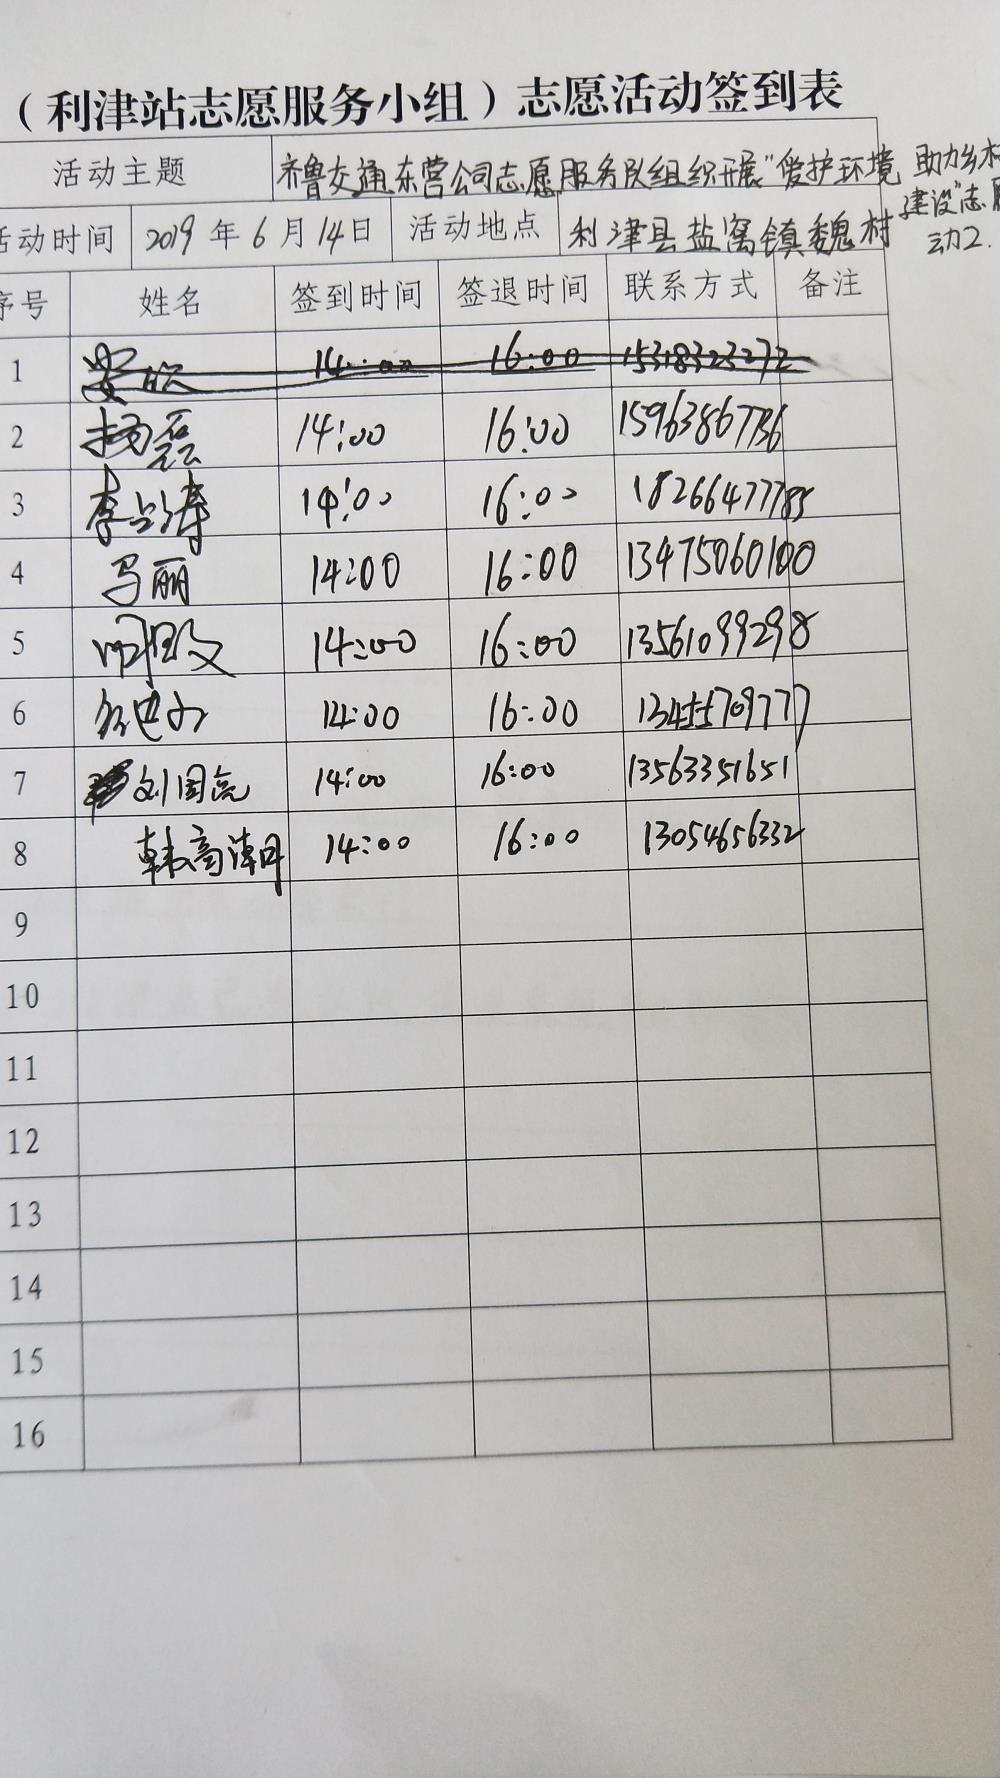 （利津站志愿服务小组）志愿活动签到表
活动主题 齐鲁交通东营公司志愿服务队组织开展"爱护环境 助力乡村
建设"志愿
动2.
活动时间 2019年6月14日 活动地点 利津县盐窝镇魏村
序号 姓名 签到时间 签退时间 联系方式 备注
1 14:00 16:00 15318323272
2 杨磊 14:00 16:00 15963867736
3 李占涛 14:00 16:00 18266477785
4 马丽 14:00 16:00 13475060100
5 14:00 16:00 13561099298
6 14:00 16:00 13455709777
7 刘国亮 14:00 16:00 13563351651
8 韩高清 14:00 16:00 13054656332
9
10
11
12
13
14
15
16